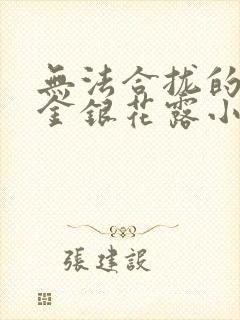 無法合拢的
金銀花露小
張建設